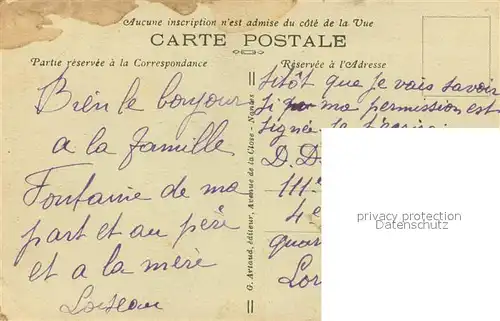 Aucune inscription n'est admise du côté de la Vue
CARTE POSTALE
Partie réservée à la Correspondance
Réservée à l'Adresse
Bien le bonjour
a la famille
Fontaine de ma
part et au père
et a la mère
Loiseau
G. Artaud, éditeur, Avenue de la Close - Nantes
sitôt que je vais savoir
si ma permission est
signée je
D. D
111
4e
quar
Lor
privacy protection
Datenschutz